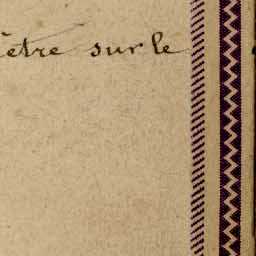 être sur le